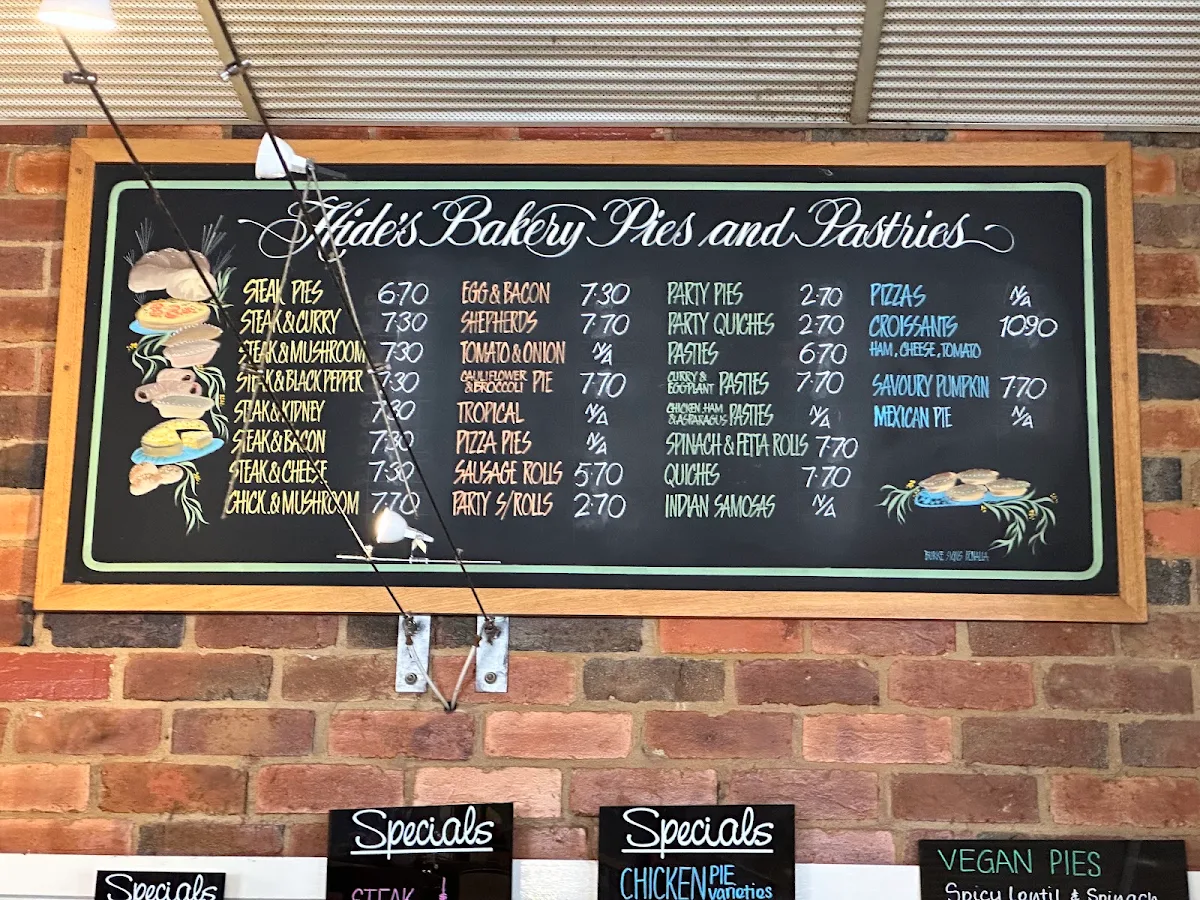 Hide's Bakery Pies and Pastries
STEAK PIES 6.70
STEAK & CURRY 7.30
STEAK & MUSHROOM 7.30
STEAK & BLACK PEPPER 7.30
STEAK & KIDNEY 7.30
STEAK & BACON 7.30
STEAK & CHEESE 7.30
CHICK. & MUSHROOM 7.70
EGG & BACON 7.30
SHEPHERDS 7.70
TOMATO & ONION N/A
CAULIFLOWER & BROCCOLI PIE 7.70
TROPICAL N/A
PIZZA PIES N/A
SAUSAGE ROLLS 5.70
PARTY S/ROLLS 2.70
PARTY PIES 2.70
PARTY QUICHES 2.70
PASTIES 6.70
CURRY & EGGPLANT PASTIES 7.70
CHICKEN, HAM & ASPARAGUS PASTIES N/A
SPINACH & FETTA ROLLS 7.70
QUICHES 7.70
INDIAN SAMOSAS N/A
PIZZAS N/A
CROISSANTS 10.90
HAM, CHEESE, TOMATO
SAVOURY PUMPKIN 7.70
MEXICAN PIE N/A
Specials
Specials
STEAK
Specials
CHICKEN PIE varieties
VEGAN PIES
Spicy Lentil & Spinach